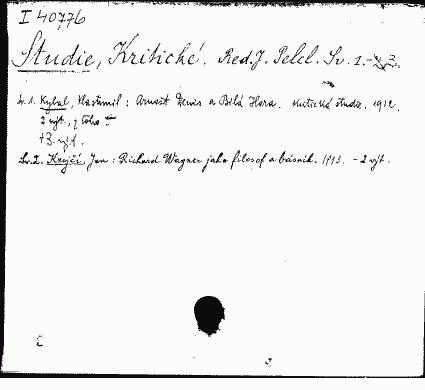 I 40776
Studie, Kritické. Red. J. Pelcl. Sv. 1.-
Sv. 1. Kybal, Vlastimil: Arnošt Denis a Bílá Hora. kritická studie. 1912.
2 výt. z toho
+3. výt.
Sv. 2. Krejčí, Jan: Richard Wagner jako filosof a básník. 1913. - 2 výt.